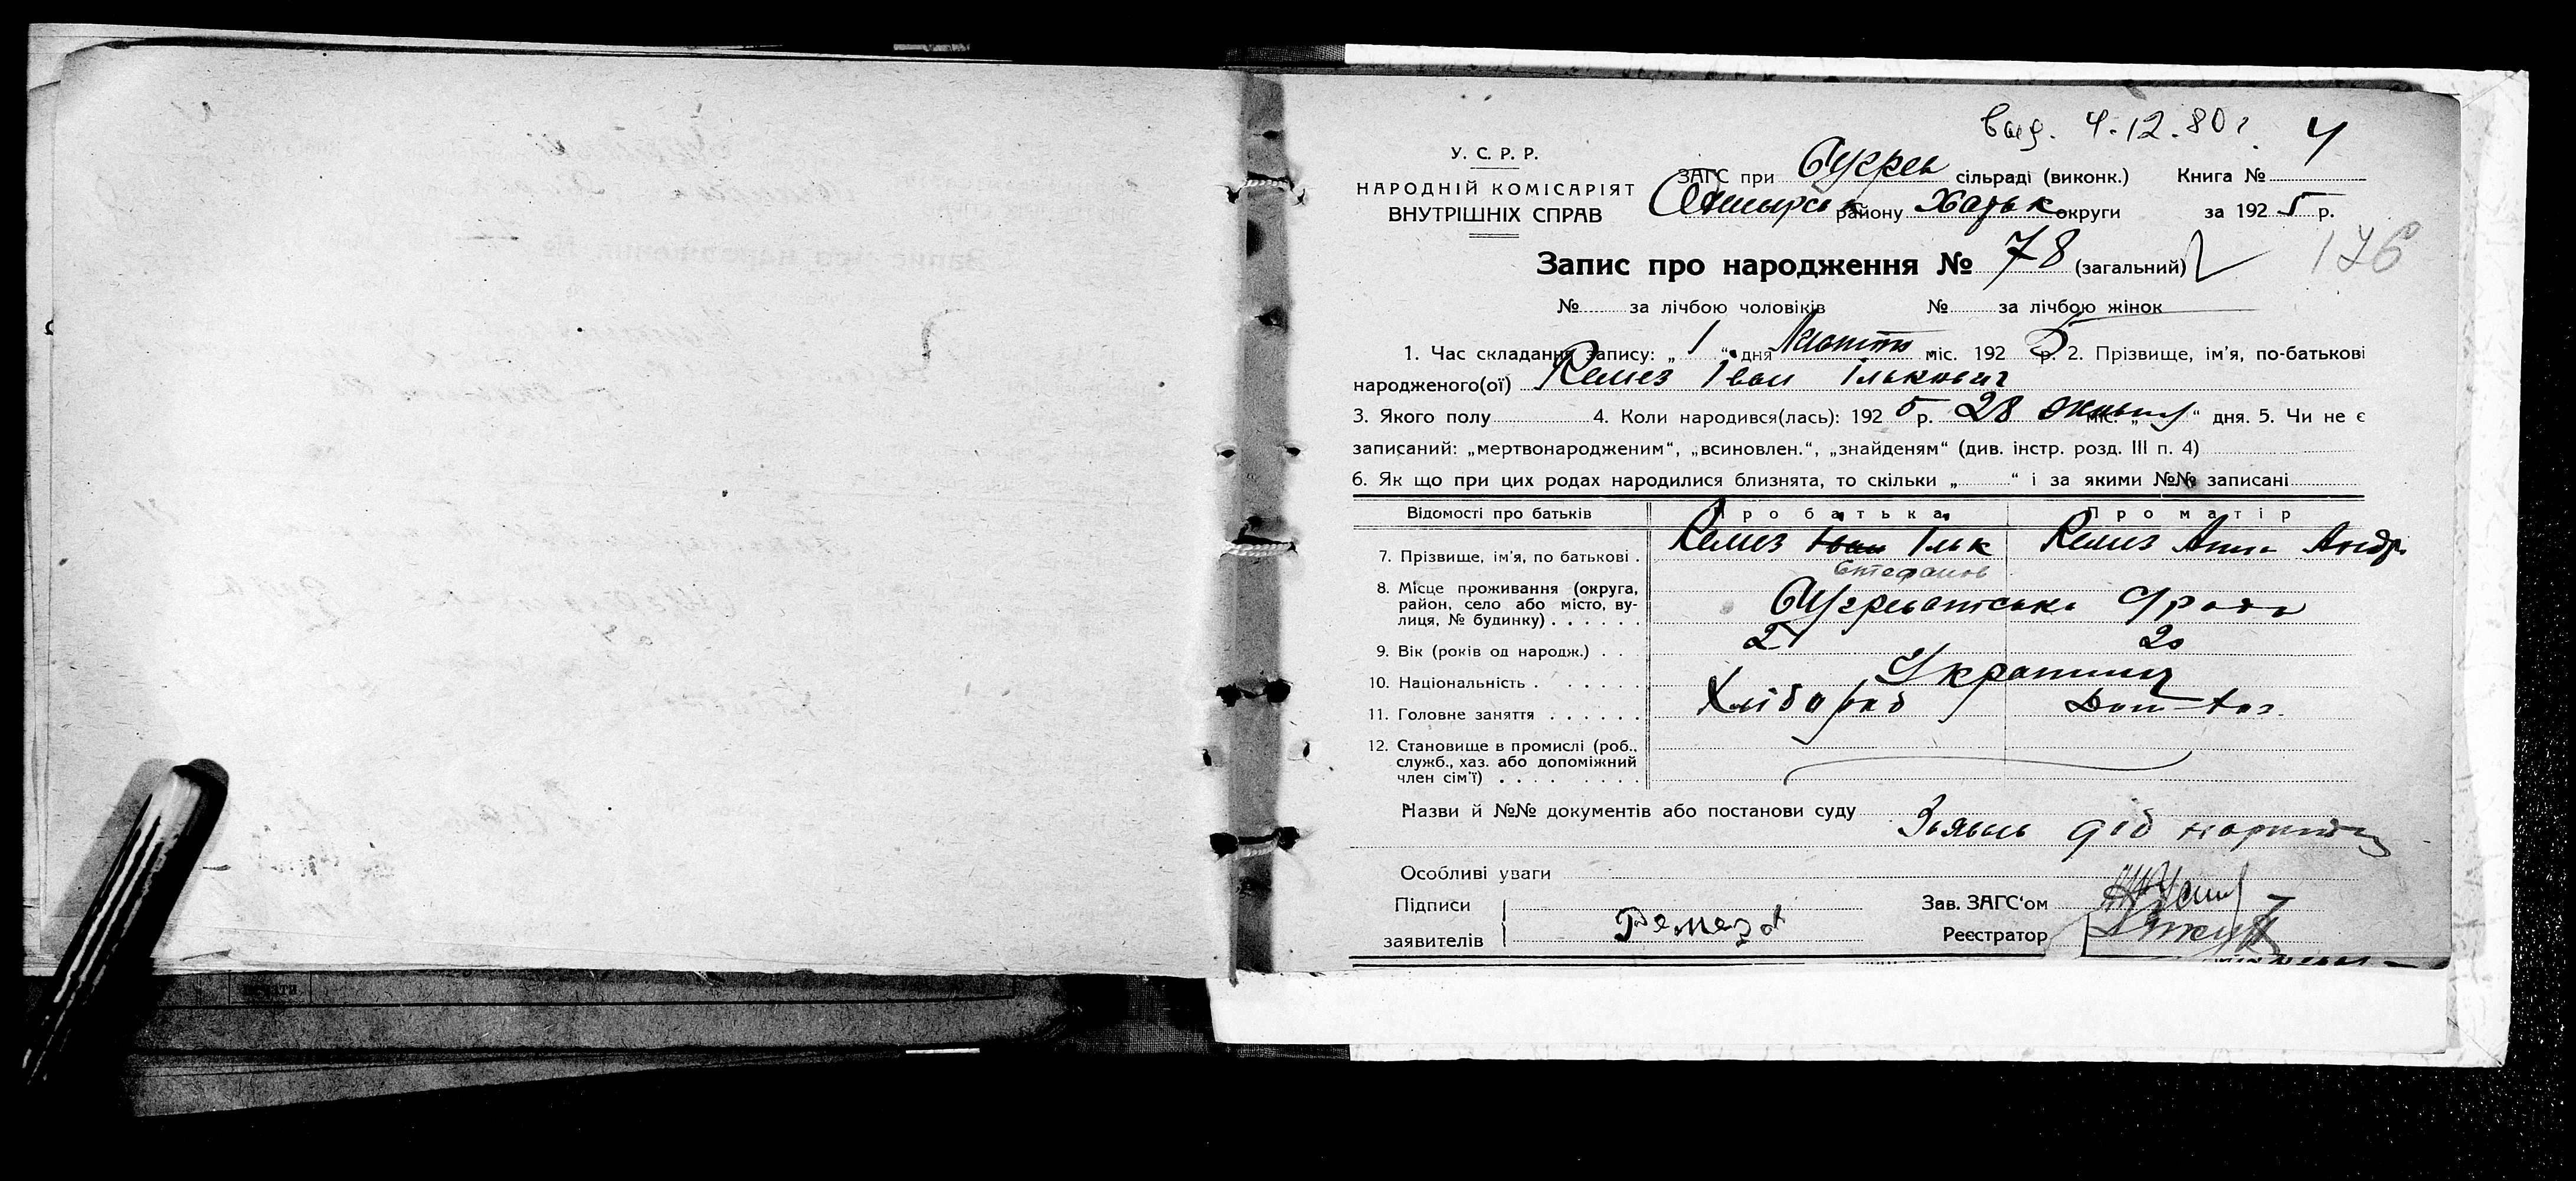 выд. 4.12.80 г. 4
У. С. Р. Р.
НАРОДНІЙ КОМІСАРІЯТ
ВНУТРІШНІХ СПРАВ
ЗАГС при сільраді (виконк.) Книга №
району Харьк округи за 192 5 р.
176
Запис про народження № 78 (загальний)
№ за лічбою чоловіків № за лічбою жінок
1. Час складання запису: „ 1 “ дня міс. 192 5 р. 2. Прізвище, ім’я, по-батькові
народженого(ої) Ремез ІванІлькович
3. Якого полу 4. Коли народився(лась): 192 5 р. 28 міс. „ “ дня. 5. Чи не є
записаний: „мертвонародженим“, „всиновлен.“, „знайденям“ (див. інстр. розд. III п. 4)
6. Як що при цих родах народилися близнята, то скільки „ “ і за якими №№ записані
Відомості про батьків Про батька Про матір
7. Прізвище, ім’я, по батькові . Ремез Іван Ільк Ремез Анна Андр.
Єнтефанов
8. Місце проживання (округа,
район, село або місто, ву-
лиця, № будинку) . . . . . .
9. Вік (років од народж.) . . 21 20
10. Національність . . . . . . Українці
11. Головне заняття . . . . . . Хлібороб Дом-хоз.
12. Становище в промислі (роб.,
служб., хаз. або допоміжний
член сім’ї) . . . . . . . . .
Назви й №№ документів або постанови суду
Особливі уваги
Підписи Зав. ЗАГС‘ом
заявителів Ремеза Реєстратор
печати